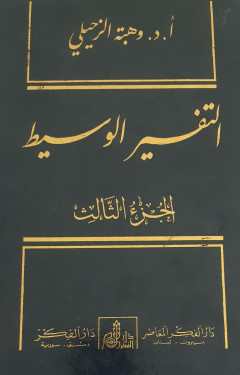 أ. د. وهبة الزحيلي
التفسير الوسيط
الجزء الثالث
دار الفكر المعاصر
بيروت - لبنان
دار الفكر
دمشق - سورية